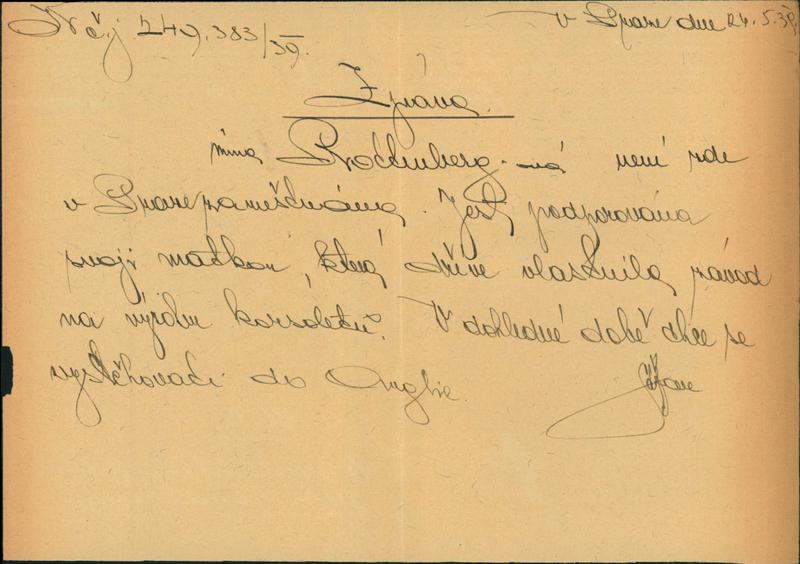 K čj 249.383/39.
v Praze dne 24.5.39.
Zpráva
není zde
v Praze zaměstnána. Jest podporována
svojí matkou, která dříve vlastnila závod
na výrobu korsetů. V dohledné době chce se
vystěhovati do Anglie.